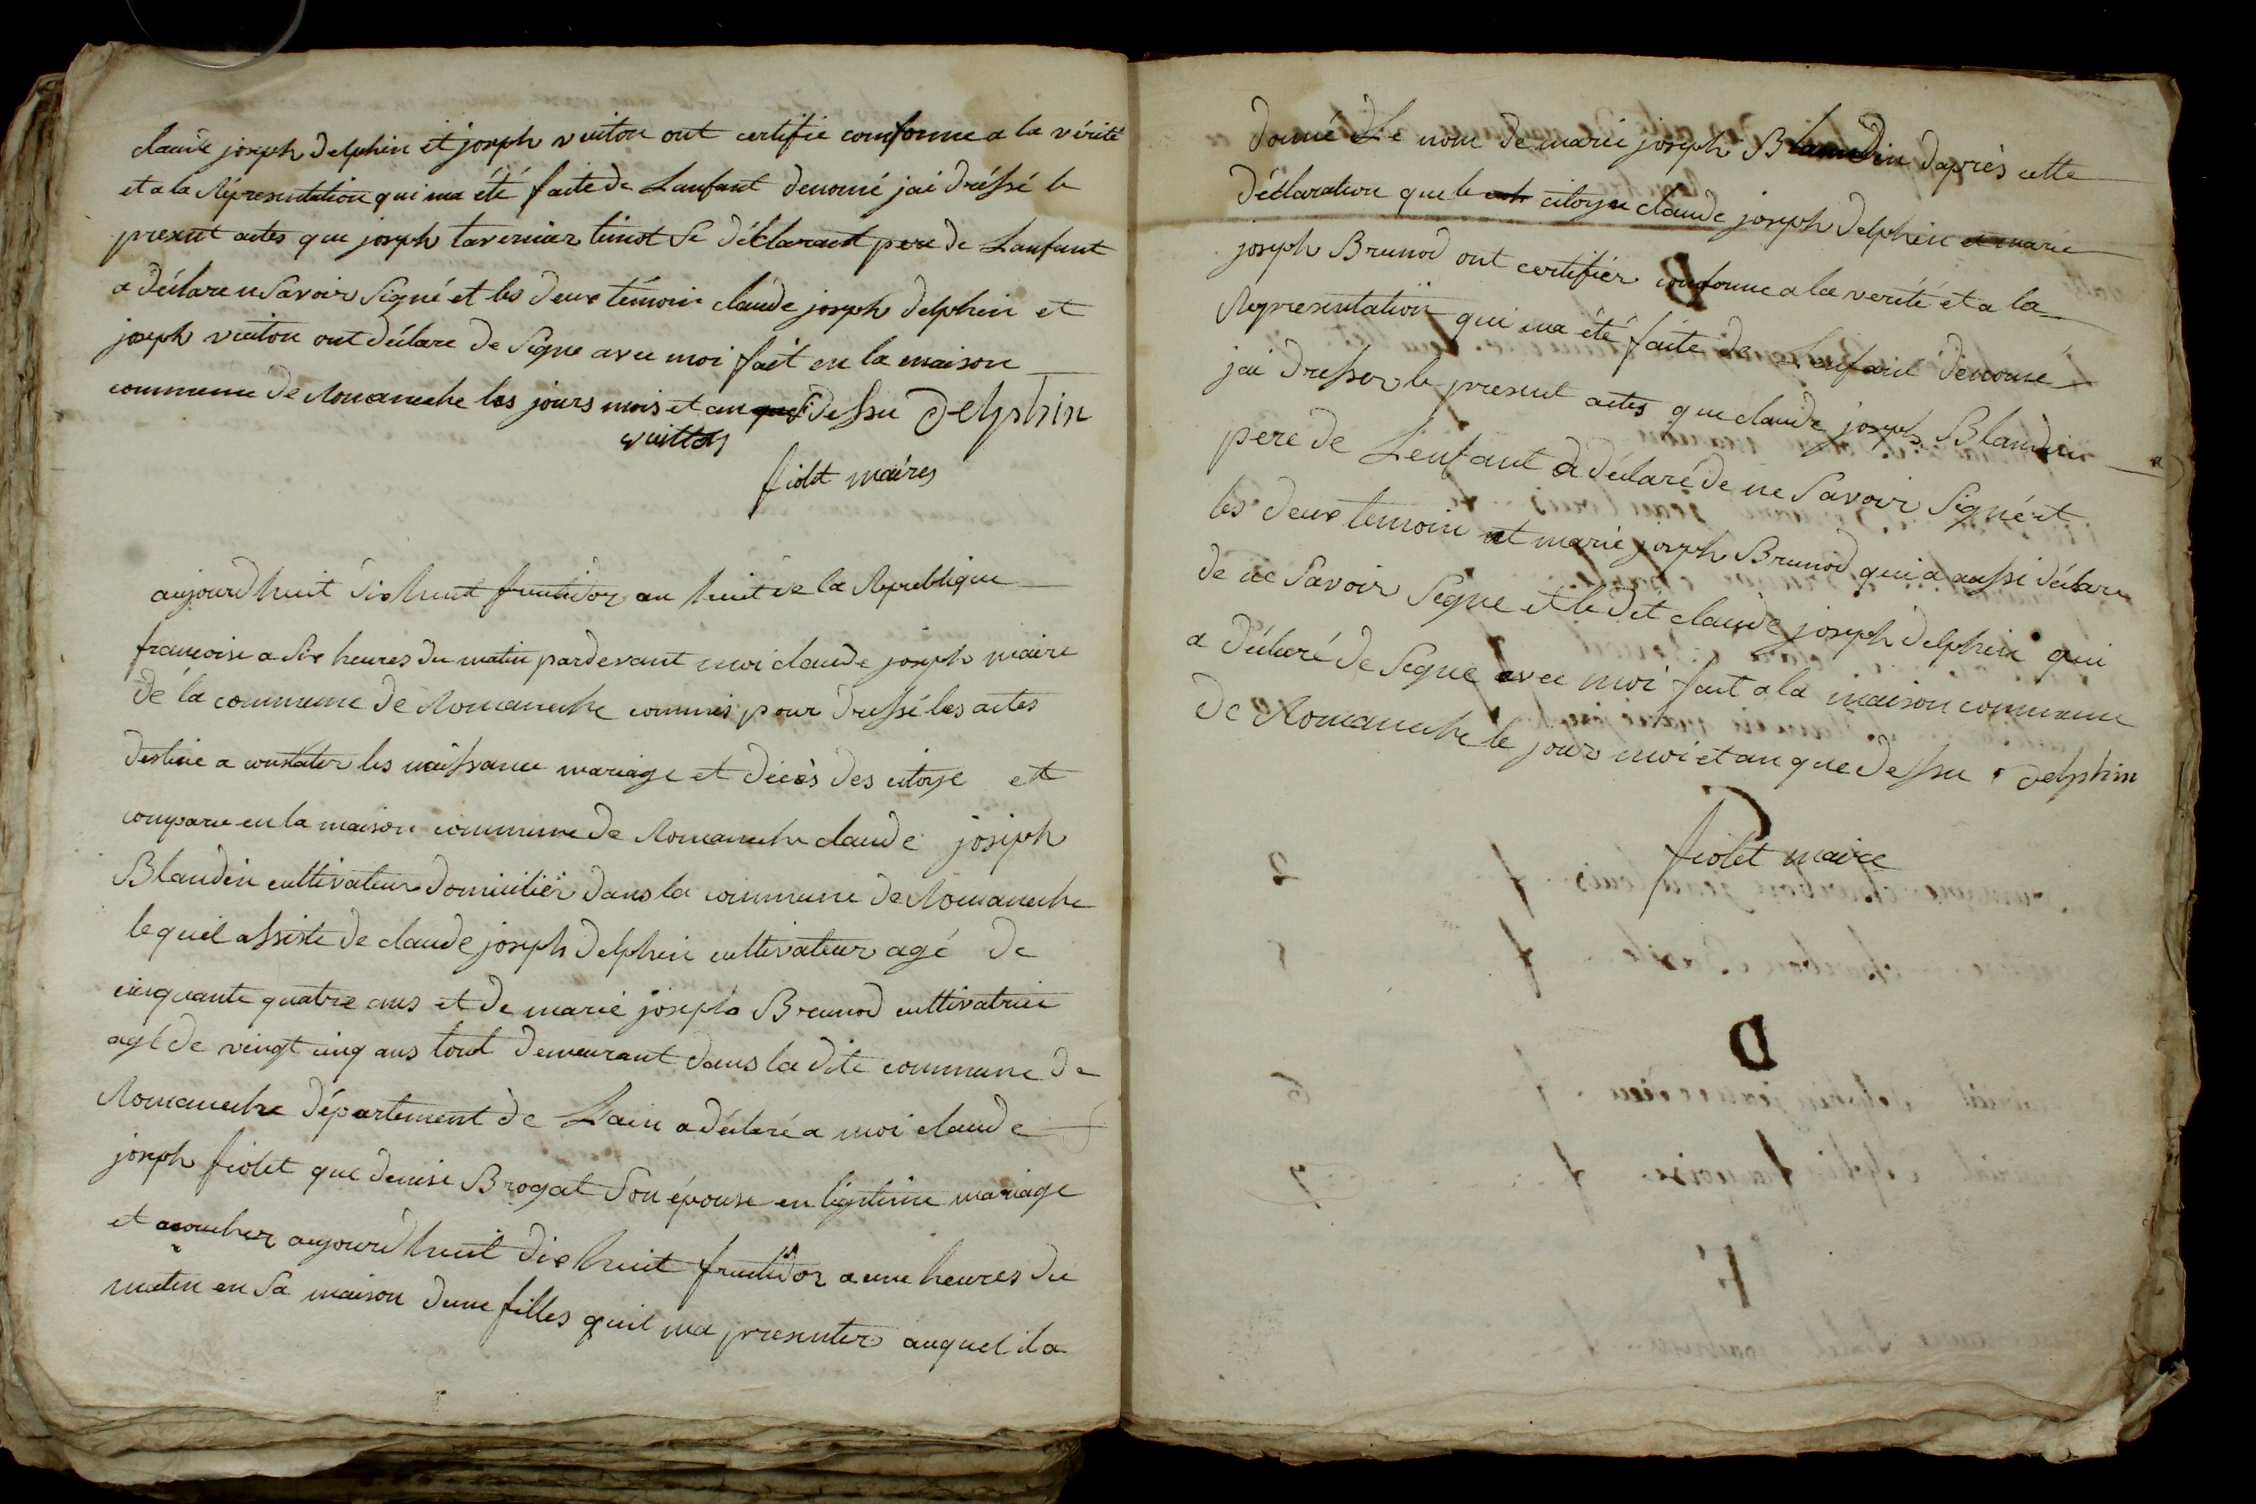 claude joseph Delphin et joseph vuiton ont certifie comforme a la vérité
et a la Répresentation qui ma été faite de Lanfant denomé jai dréssé le
present actes que joseph tavernier tiniot Se déklarant pere de Lanfant
a déclare n Savoir Signé et les deux témoin claude joseph delphin et
joseph vuiton ont déclare de Signe avec moi fait en la maison
commune de Romaneche les jours mois et an que dessu Delphin
vuitton
fiolet maires
aujourdhuit dix huit fruitidor an huit de la Republique
francoise a Six heures du matin pardevant moi claude joseph maire
de la commune de Romaneche commis pour dressé les actes
destiné a constater les naissance mariage et décès des citoye est
comparu en la maison commune de Romaneche claude joseph
Blandin cultivateur domicilier dans la commune de Romaneche
lequel assiste de claude joseph delphin cultivateur agé de
cinquante quatre ans et de marie joseph Brunod cultivatrice
agé de vingt cinq ans tout demeurant dans la dite commune de
Romaneche département de Lain a déclaré a moi claude
joseph fiolet que denise Brogat Son épouse en ligitime mariage
et acoucher aujourdhuit dix huit fruitidor a une heures du
matin en Sa maison dune filles quil ma presenter auquel il a
donné Le nom de marie joseph Blandin daprès cette
déclaration que le citoyen claude joseph delphin et marie
joseph Brunod ont certifiér conforme a la verité et a la
Representation qui ma été faite de Lenfant dénomé
jai dresser le present actes que claude joseph Blandin
pere de Lenfant a déclaré de ne Savoir Signé et
les deux temoin et marie joseph Brunod qui a aussi déclare
de ne Savoir Signe et le dit claude joseph delphin qui
a déclaré de Signe avec moi fait a la maison commune
de Romaneche le jours moi et an que dessu delphin
fiolet maire